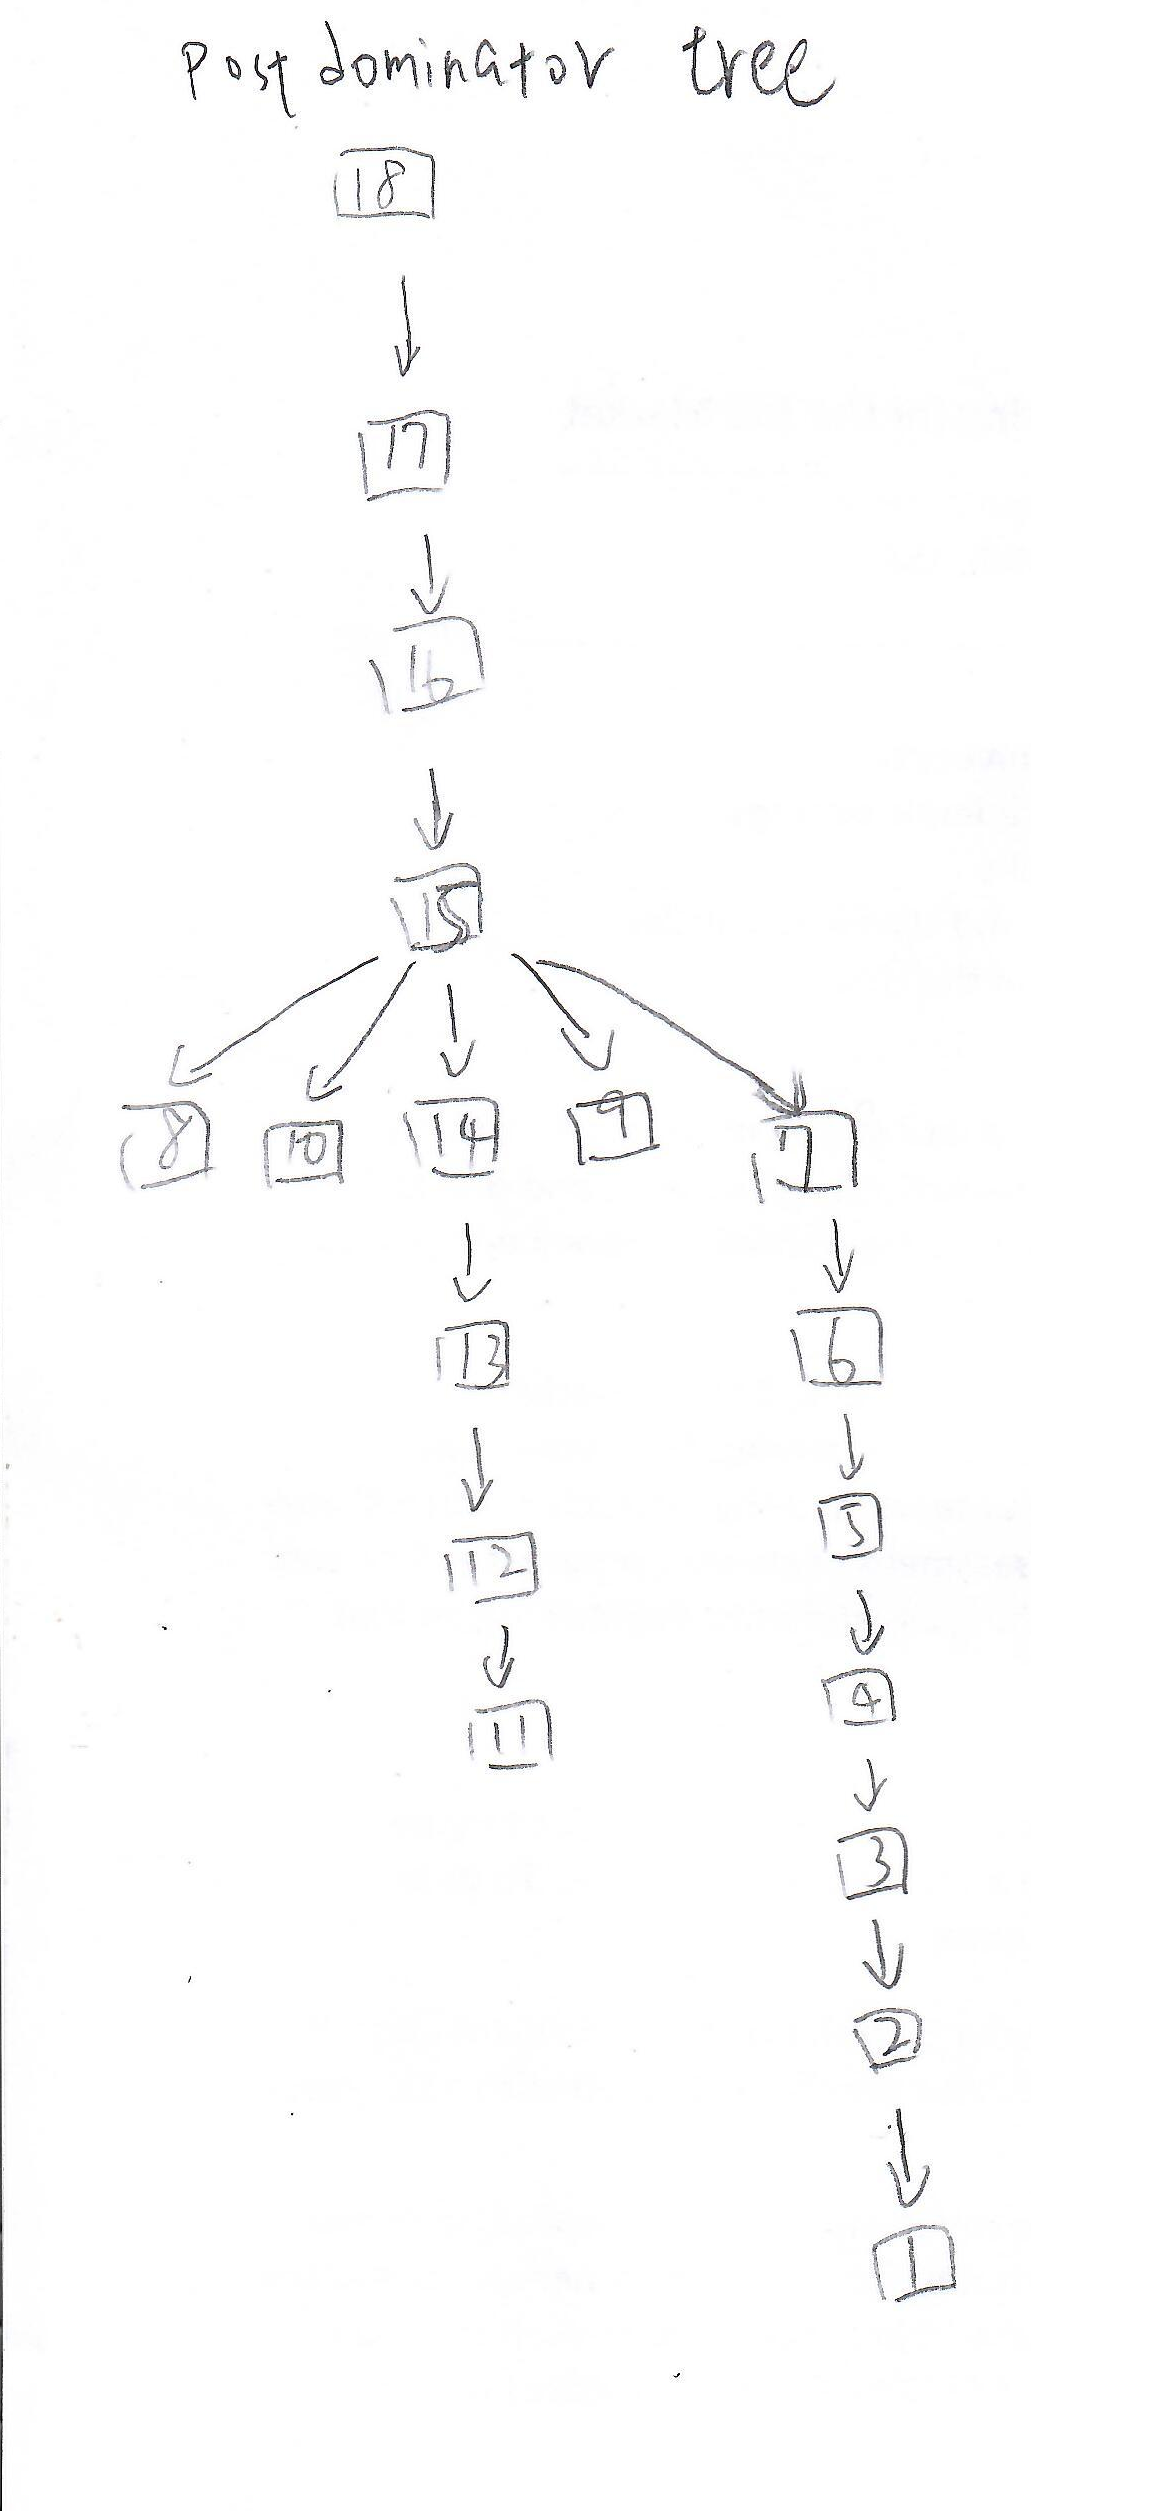 Post dominator tree
18
17
16
15
8 10 14 9 7
13 6
12 5
11 4
3
2
1